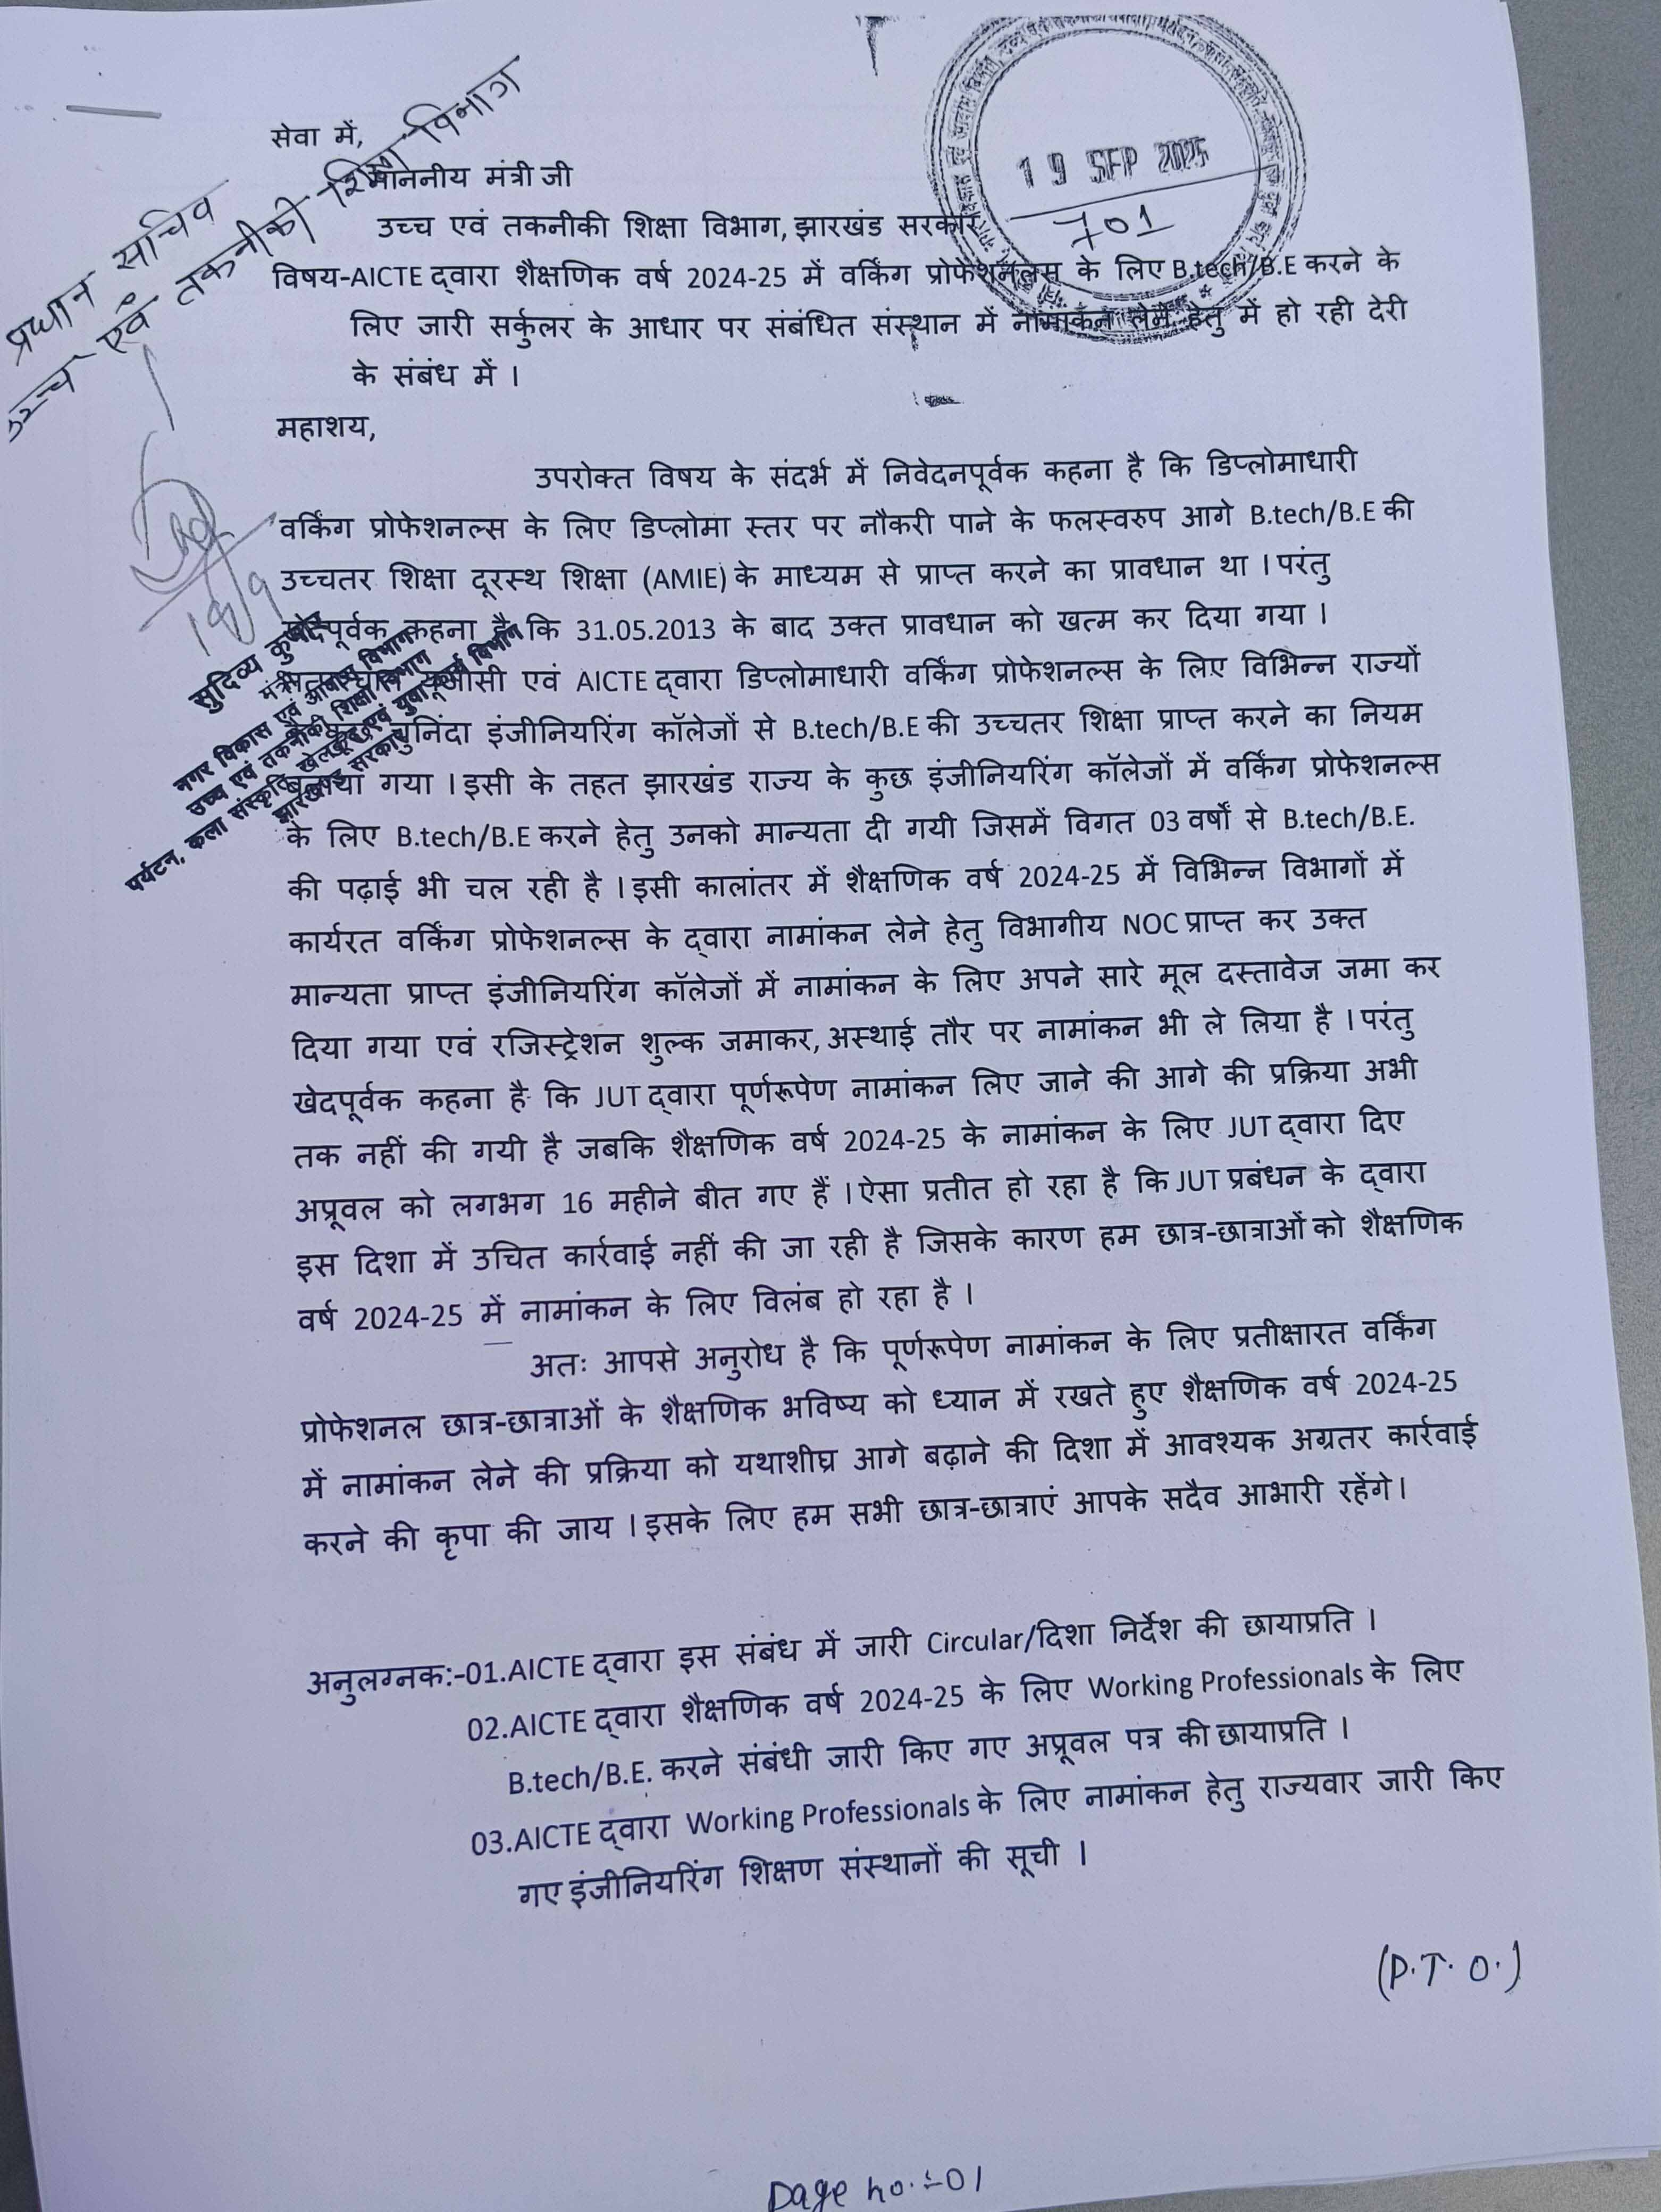 प्रधान सचिव
उच्च एवं तकनीकी शिक्षा विभाग
19 SEP 2025
701
सेवा में,
माननीय मंत्री जी
उच्च एवं तकनीकी शिक्षा विभाग, झारखंड सरकार
विषय-AICTE द्वारा शैक्षणिक वर्ष 2024-25 में वर्किंग प्रोफेशनल्स के लिए B.tech/B.E करने के
लिए जारी सर्कुलर के आधार पर संबंधित संस्थान में नामांकन लेने हेतु में हो रही देरी
के संबंध में ।
महाशय,
उपरोक्त विषय के संदर्भ में निवेदनपूर्वक कहना है कि डिप्लोमाधारी
वर्किंग प्रोफेशनल्स के लिए डिप्लोमा स्तर पर नौकरी पाने के फलस्वरुप आगे B.tech/B.E की
उच्चतर शिक्षा दूरस्थ शिक्षा (AMIE) के माध्यम से प्राप्त करने का प्रावधान था । परंतु
खेदपूर्वक कहना है कि 31.05.2013 के बाद उक्त प्रावधान को खत्म कर दिया गया ।
यूजीसी एवं AICTE द्वारा डिप्लोमाधारी वर्किंग प्रोफेशनल्स के लिए विभिन्न राज्यों
चुनिंदा इंजीनियरिंग कॉलेजों से B.tech/B.E की उच्चतर शिक्षा प्राप्त करने का नियम
बनाया गया । इसी के तहत झारखंड राज्य के कुछ इंजीनियरिंग कॉलेजों में वर्किंग प्रोफेशनल्स
के लिए B.tech/B.E करने हेतु उनको मान्यता दी गयी जिसमें विगत 03 वर्षों से B.tech/B.E.
की पढ़ाई भी चल रही है । इसी कालांतर में शैक्षणिक वर्ष 2024-25 में विभिन्न विभागों में
कार्यरत वर्किंग प्रोफेशनल्स के द्वारा नामांकन लेने हेतु विभागीय NOC प्राप्त कर उक्त
मान्यता प्राप्त इंजीनियरिंग कॉलेजों में नामांकन के लिए अपने सारे मूल दस्तावेज जमा कर
दिया गया एवं रजिस्ट्रेशन शुल्क जमाकर, अस्थाई तौर पर नामांकन भी ले लिया है । परंतु
खेदपूर्वक कहना है कि JUT द्वारा पूर्णरूपेण नामांकन लिए जाने की आगे की प्रक्रिया अभी
तक नहीं की गयी है जबकि शैक्षणिक वर्ष 2024-25 के नामांकन के लिए JUT द्वारा दिए
अप्रूवल को लगभग 16 महीने बीत गए हैं । ऐसा प्रतीत हो रहा है कि JUT प्रबंधन के द्वारा
इस दिशा में उचित कार्रवाई नहीं की जा रही है जिसके कारण हम छात्र-छात्राओं को शैक्षणिक
वर्ष 2024-25 में नामांकन के लिए विलंब हो रहा है ।
अतः आपसे अनुरोध है कि पूर्णरूपेण नामांकन के लिए प्रतीक्षारत वर्किंग
प्रोफेशनल छात्र-छात्राओं के शैक्षणिक भविष्य को ध्यान में रखते हुए शैक्षणिक वर्ष 2024-25
में नामांकन लेने की प्रक्रिया को यथाशीघ्र आगे बढ़ाने की दिशा में आवश्यक अग्रतर कार्रवाई
करने की कृपा की जाय । इसके लिए हम सभी छात्र-छात्राएं आपके सदैव आभारी रहेंगे।
19/9
सुदिव्य कुमार
मंत्री
नगर विकास एवं आवास विभाग
उच्च एवं तकनीकी शिक्षा विभाग
पर्यटन, कला संस्कृति, खेलकूद एवं युवा कार्य विभाग
झारखंड सरकार
अनुलग्नक:-01.AICTE द्वारा इस संबंध में जारी Circular/दिशा निर्देश की छायाप्रति ।
02.AICTE द्वारा शैक्षणिक वर्ष 2024-25 के लिए Working Professionals के लिए
B.tech/B.E. करने संबंधी जारी किए गए अप्रूवल पत्र की छायाप्रति ।
03.AICTE द्वारा Working Professionals के लिए नामांकन हेतु राज्यवार जारी किए
गए इंजीनियरिंग शिक्षण संस्थानों की सूची ।
(P.T.O.)
Page no.:-01